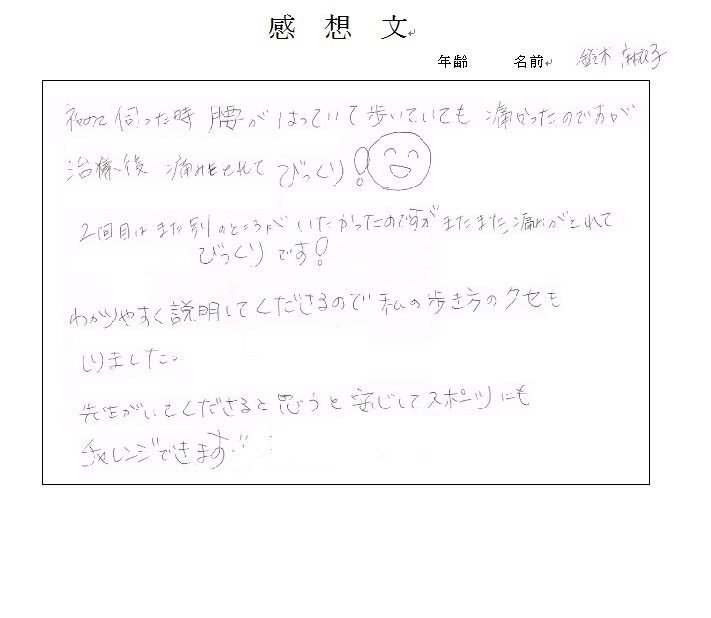 感 想 文
年齢 名前 鈴木
初めて伺った時 腰が はっていて歩いていても 痛かったのですが
治療後 痛みもとれて びっくり!
2回目は また別のところが いたかったのですが またまた痛みがとれて
びっくりです!
わかりやすく説明してくださるので 私の歩き方のクセも
しりました。
先生がいてくださると思うと 安心してスポーツにも
チャレンジできます!!